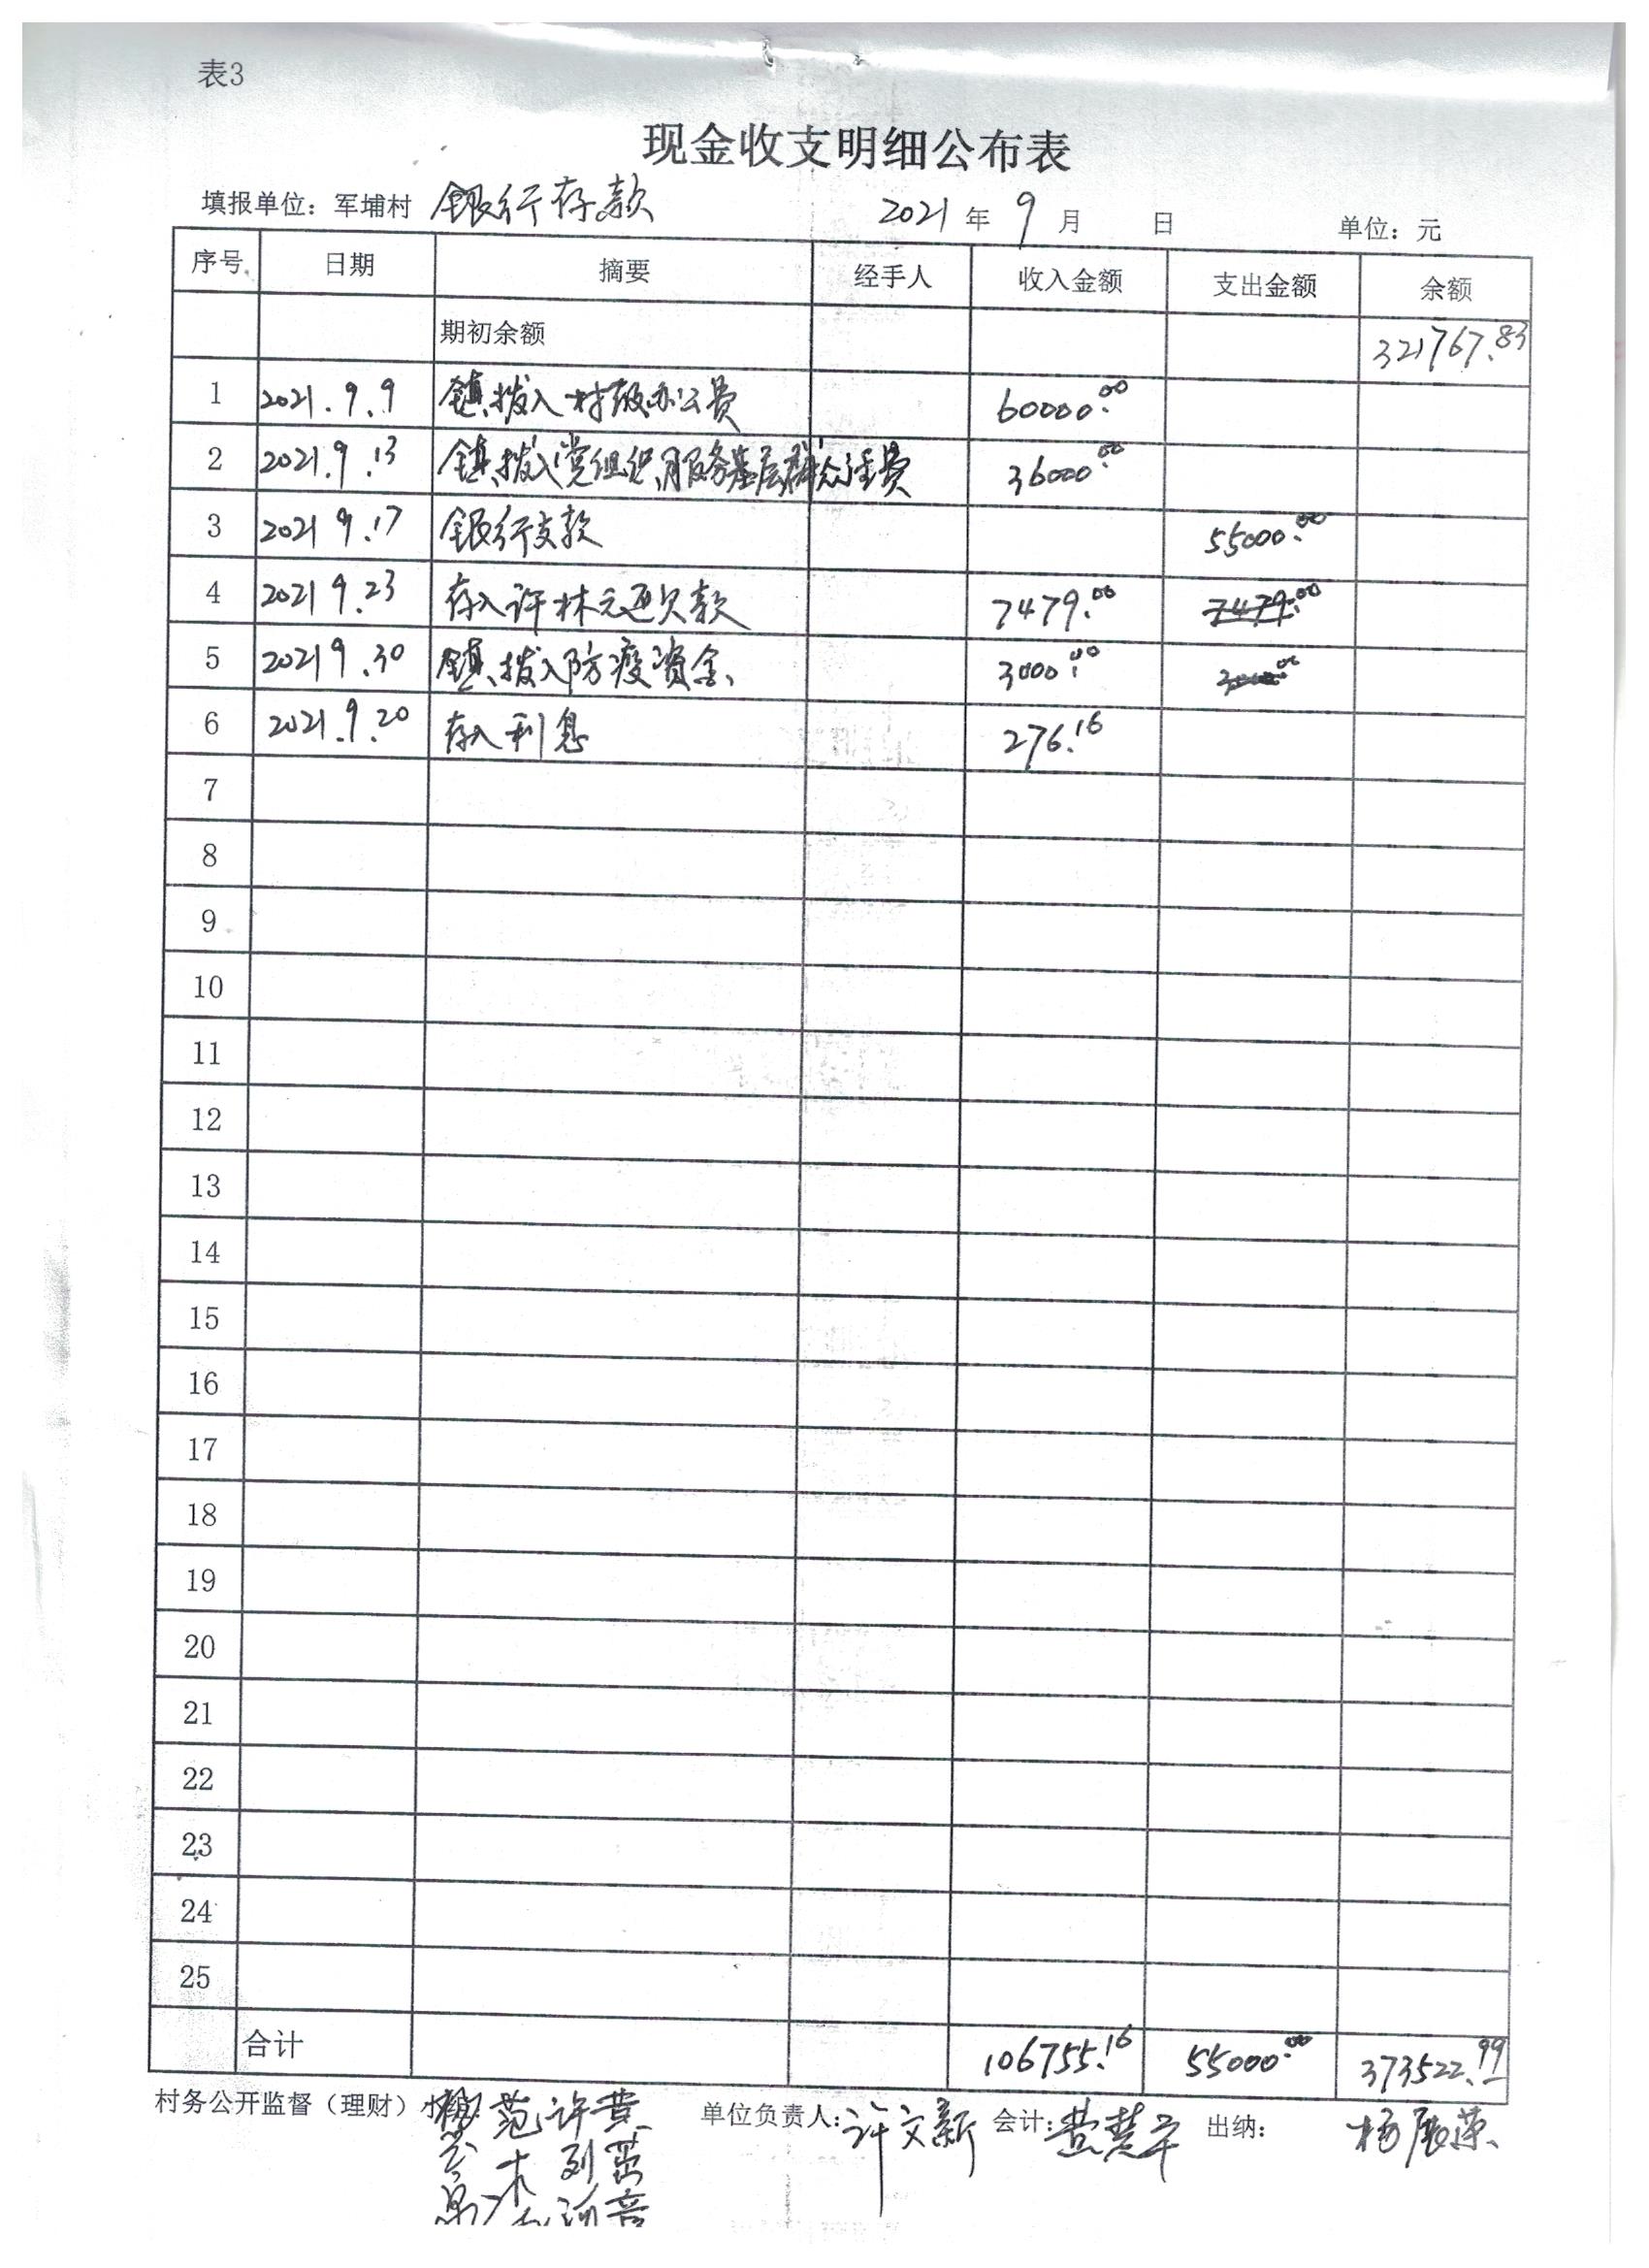 表3
现金收支明细公布表
填报单位：军埔村 银行存款 2021 年 9 月 日 单位：元
序号 日期 摘要 经手人 收入金额 支出金额 余额
期初余额 321767.83
1 2021.9.9 镇拨入村级办公费 60000.00
2 2021.9.13 镇拨入党组织服务基层群众经费 36000.00
3 2021 9.17 银行支款 55000.00
4 2021 9.23 存入许林元还欠款 7479.00 7479.00
5 2021 9.30 镇拨入防疫资金 3000.00
6 2021.9.20 存入利息 276.16
7
8
9
10
11
12
13
14
15
16
17
18
19
20
21
22
23
24
25
合计 106755.16 55000.00 373522.99
村务公开监督（理财）小组: 单位负责人: 许文新 会计: 出纳: